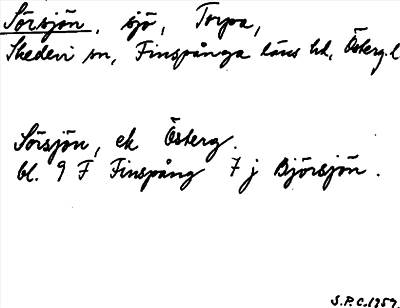 Sörsjön, sjö, Torpa,
Skedevi sn, Finspånga läns hd, Österg. l
Sörsjön, ek Österg.
bl. 9 F Finspång 7 j Björsjön.
S.P.C. 1959.